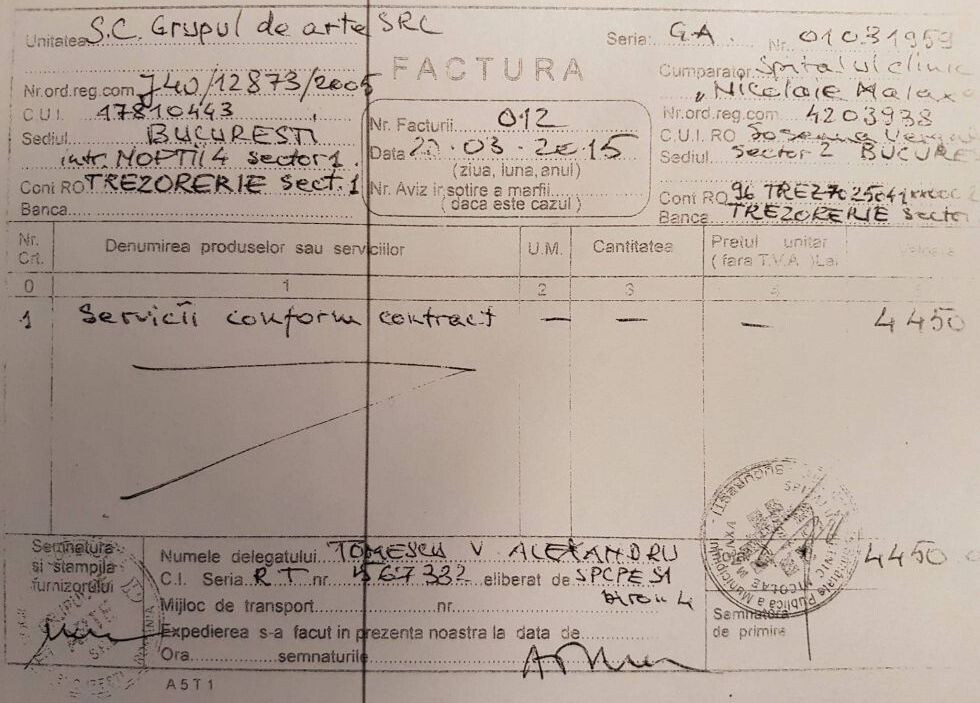 Unitatea S.C. Grupul de arte SRL
Nr.ord.reg.com. J40/12873/2005
C U I. 17810443
Sediul BUCURESTI
intr. NOPTII 4 sector 1
Cont RO TREZORERIE sect. 1
Banca
FACTURA
Nr. Facturii 012
Data .03.2015
(ziua, luna, anul)
Nr. Aviz insotire a marfii
(daca este cazul)
Seria: G.A. Nr. 01031959
Cumparator Spitalul clinic
"Nicolaie Malax
Nr.ord.reg.com. 4203938
C.U.I. RO Soseaua Verg
Sediul sector 2 BUCURE
Cont RO 96 TREZ
Banca TREZORERIE sector
Nr. Crt. Denumirea produselor sau serviciilor U.M. Cantitatea Pretul unitar (fara T.V.A.) Lei Valoarea
0 1 2 3 4 5
1 Servicii conform contract — — — 4450
Semnatura si stampila furnizorului
Numele delegatului TOMESCU V ALEXANDRU
C.I. Seria RT nr 567332 eliberat de SPCPE S1
birou 4
Mijloc de transport nr.
Expedierea s-a facut in prezenta noastra la data de
Ora semnaturile
4450
Semnatura de primire
A5T1